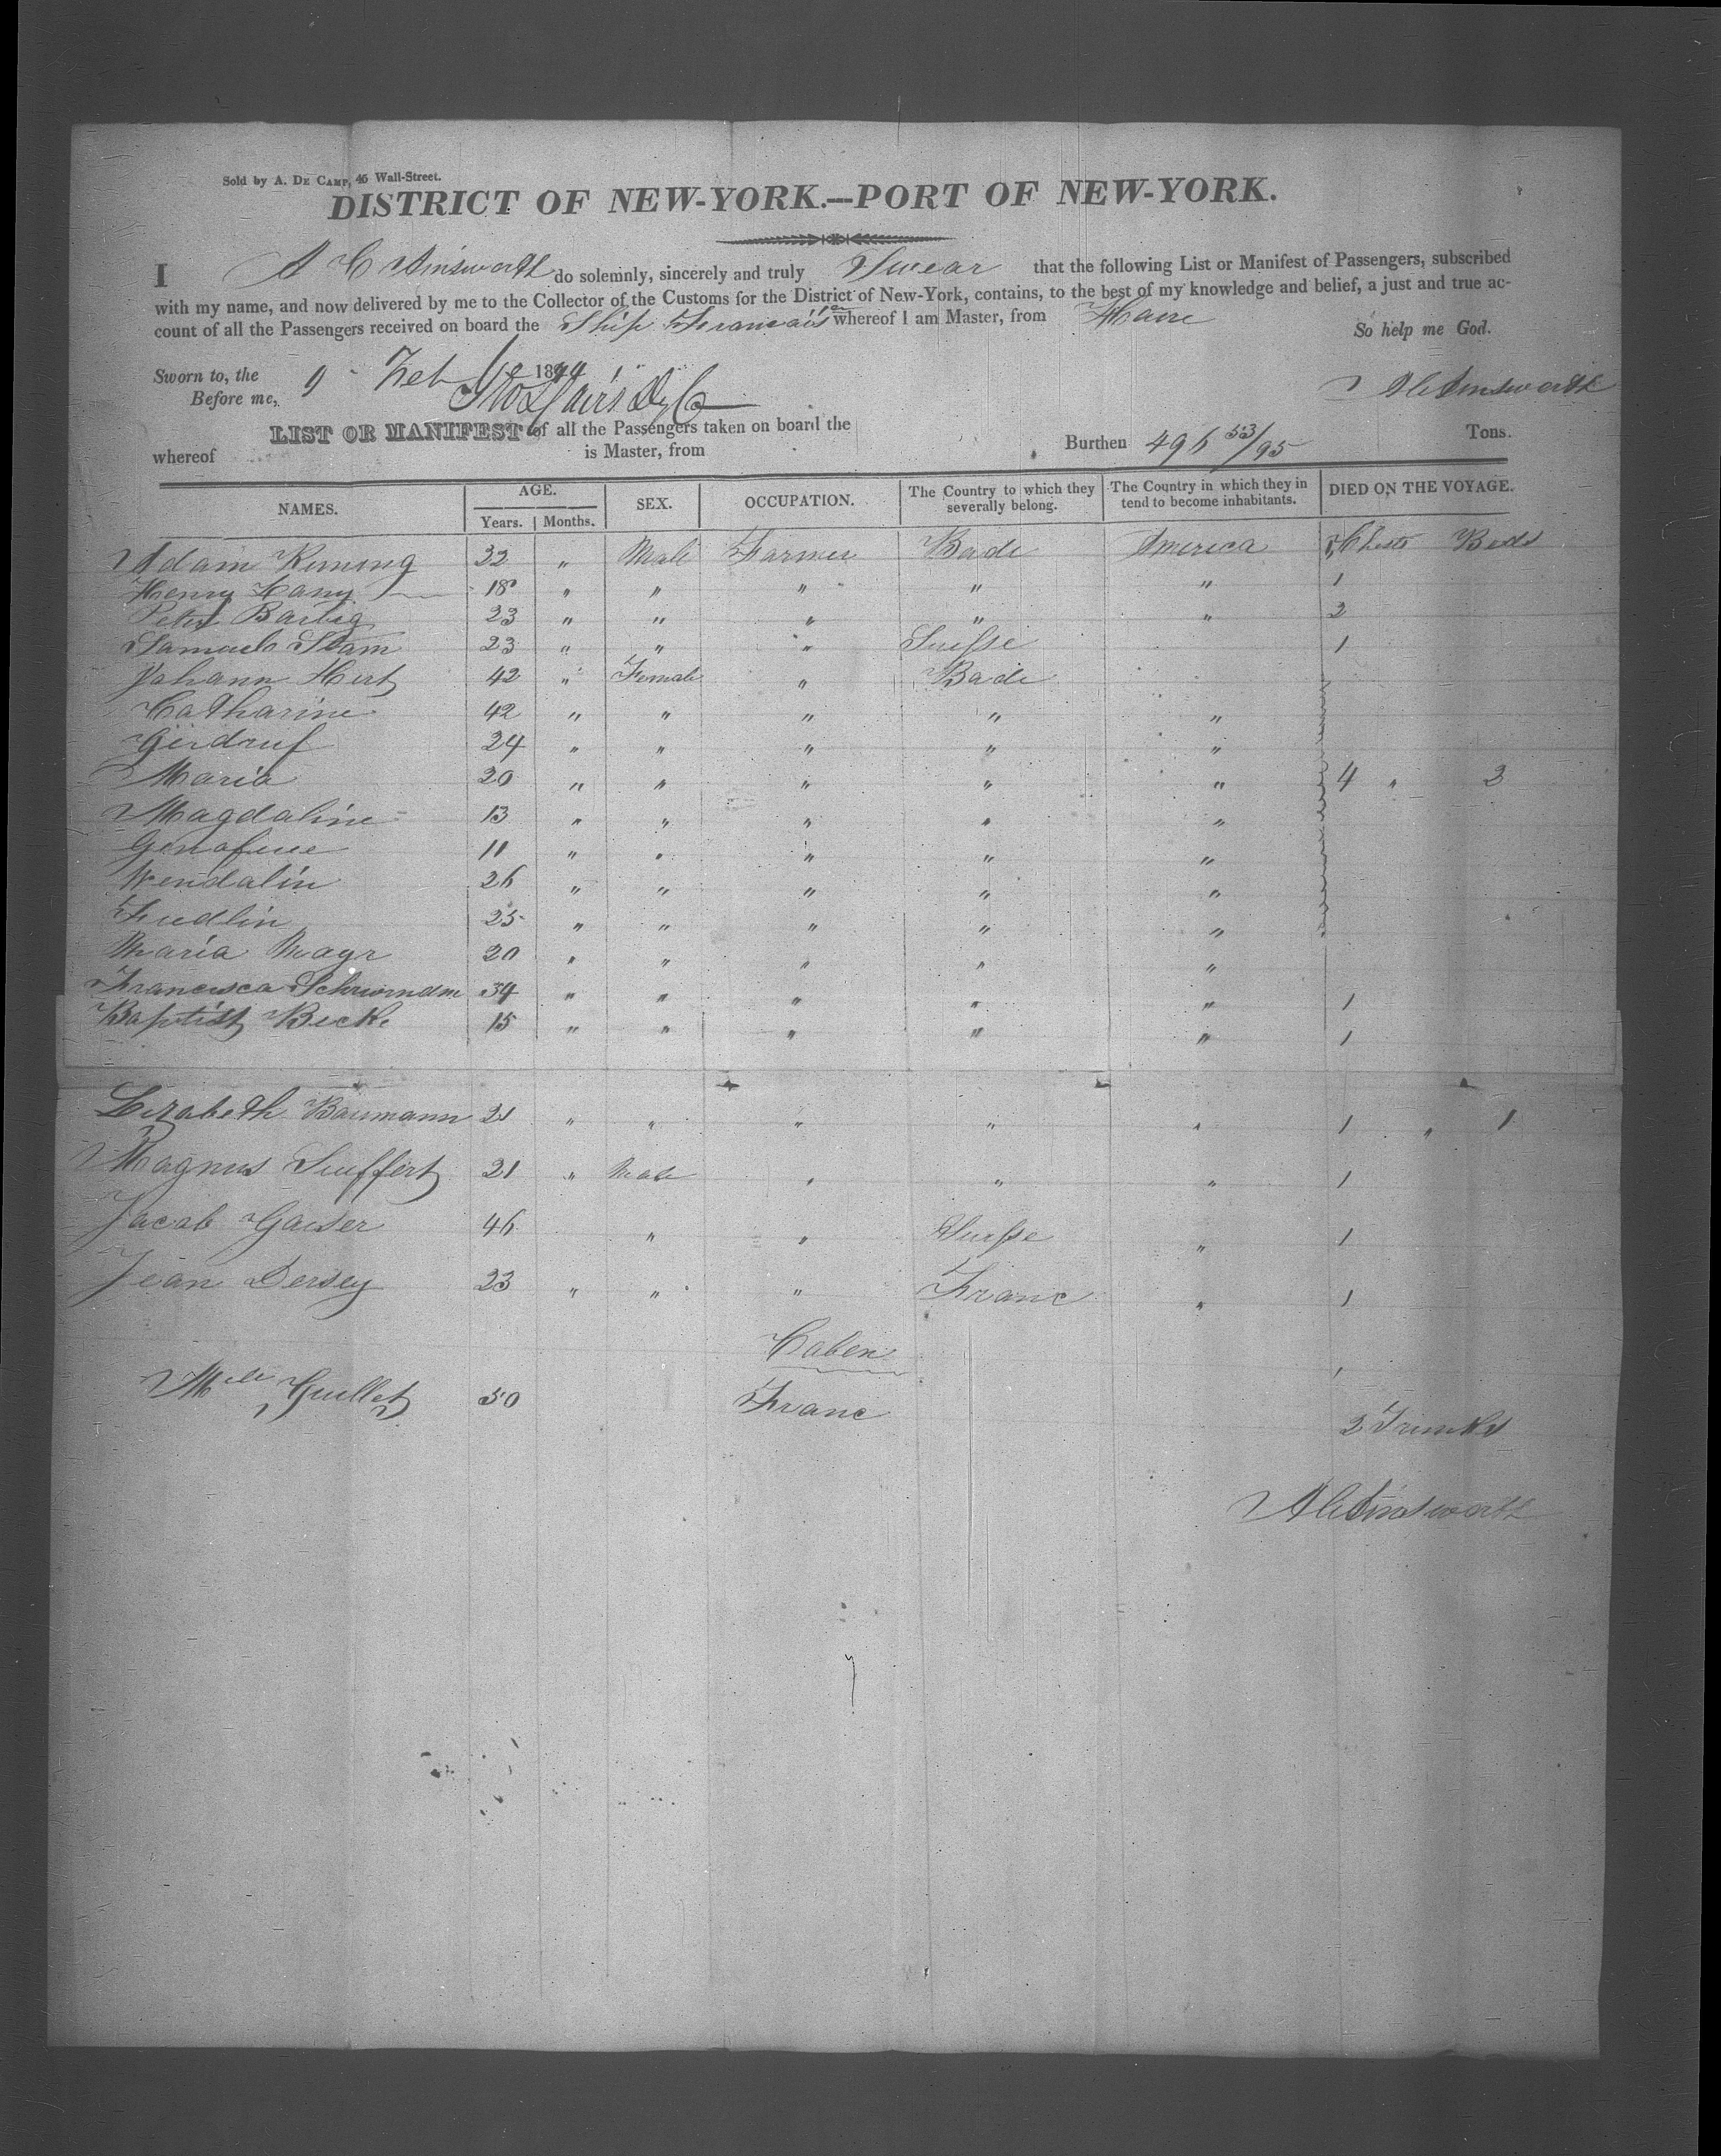 Sold by A. DE CAMP, 45 Wall-Street.
DISTRICT OF NEW-YORK.—PORT OF NEW-YORK.
I A C Ainsworth do solemnly, sincerely and truly Swear that the following List or Manifest of Passengers, subscribed
with my name, and now delivered by me to the Collector of the Customs for the District of New-York, contains, to the best of my knowledge and belief, a just and true ac-
count of all the Passengers received on board the Ship whereof I am Master, from Havre
So help me God.
Sworn to, the 9 Feb 1844
Before me, A C Ainsworth
LIST OR MANIFEST of all the Passengers taken on board the
whereof is Master, from Burthen 496 53/95 Tons.
NAMES. AGE. Years. Months. SEX. OCCUPATION. The Country to which they severally belong. The Country in which they in tend to become inhabitants. DIED ON THE VOYAGE.
Adam 32 " Male Farmer Bade America Chests Beds
Henry 18 " " " " " 1
Peter Barbig 23 " " " " " 2
Samuel Stam 23 " " " Suisse 1
Johann Hert 42 " Female " Bade
Catharine 42 " " " " "
24 " " " " "
Maria 20 " " " " " 4 " 3
Magdaline 13 " " " " "
11 " " " " "
Wendalin 26 " " " " "
25 " " " " "
Maria Mayr 20 " " " " "
Francisca 34 " " " " " 1
Baptist Beck 15 " " " " " 1
Elizabeth Baumann 21 " " " " " 1 " 1
Magnus Seuffert 21 " Male " " " 1
Jacob Gaiser 46 " " Suisse " 1
Jean Dersey 23 " " " Franc " 1
Caben
Mlle Guillet 50 Franc
2 Trunks
A C Ainsworth